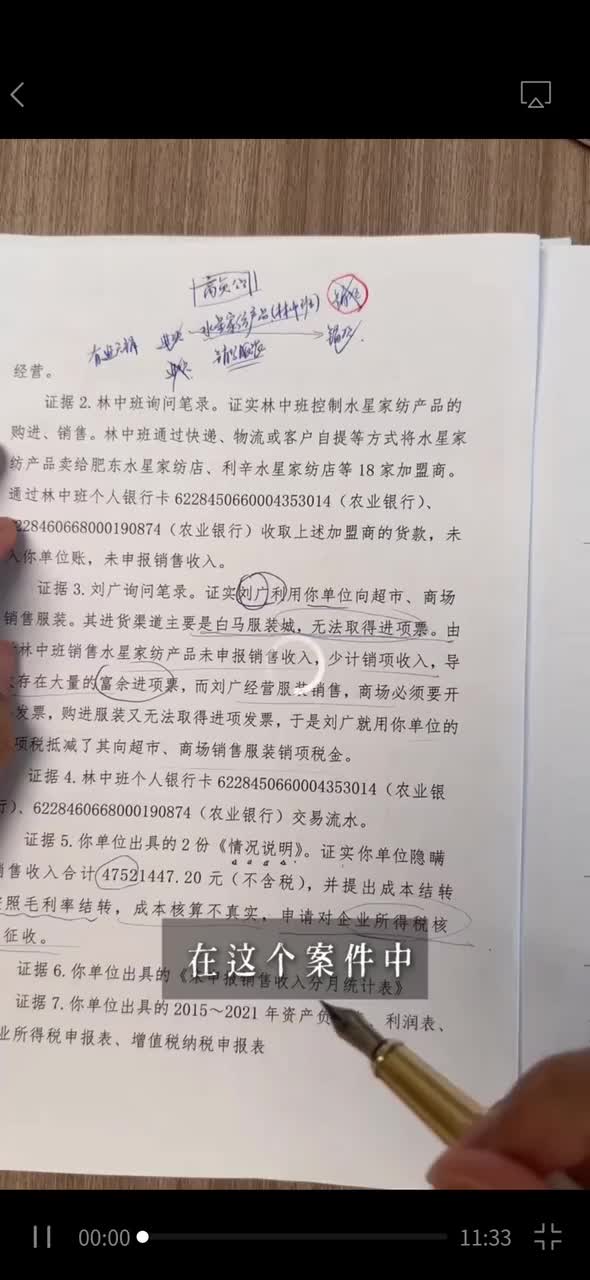 商贸公司
水星家纺产品(林中班)
销售服装
经营。
证据 2.林中班询问笔录。证实林中班控制水星家纺产品的
购进、销售。林中班通过快递、物流或客户自提等方式将水星家
纺产品卖给肥东水星家纺店、利辛水星家纺店等 18 家加盟商。
通过林中班个人银行卡 6228450660004353014（农业银行）、
228460668000190874（农业银行）收取上述加盟商的货款，未
入你单位账，未申报销售收入。
证据 3.刘广询问笔录。证实刘广利用你单位向超市、商场
销售服装。其进货渠道主要是白马服装城，无法取得进项票。由
林中班销售水星家纺产品未申报销售收入，少计销项收入，导
存在大量的富余进项票，而刘广经营服装销售，商场必须要开
发票，购进服装又无法取得进项发票，于是刘广就用你单位的
项税抵减了其向超市、商场销售服装销项税金。
证据 4.林中班个人银行卡 6228450660004353014（农业银
行）、6228460668000190874（农业银行）交易流水。
证据 5.你单位出具的 2 份《情况说明》。证实你单位隐瞒
销售收入合计 47521447.20 元（不含税），并提出成本结转
按照毛利率结转，成本核算不真实，申请对企业所得税核
征收。
在这个案件中
证据 6.你单位出具的《未申报销售收入分月统计表》
证据 7.你单位出具的 2015～2021 年资产负 、利润表、
业所得税申报表、增值税纳税申报表
00:00
11:33